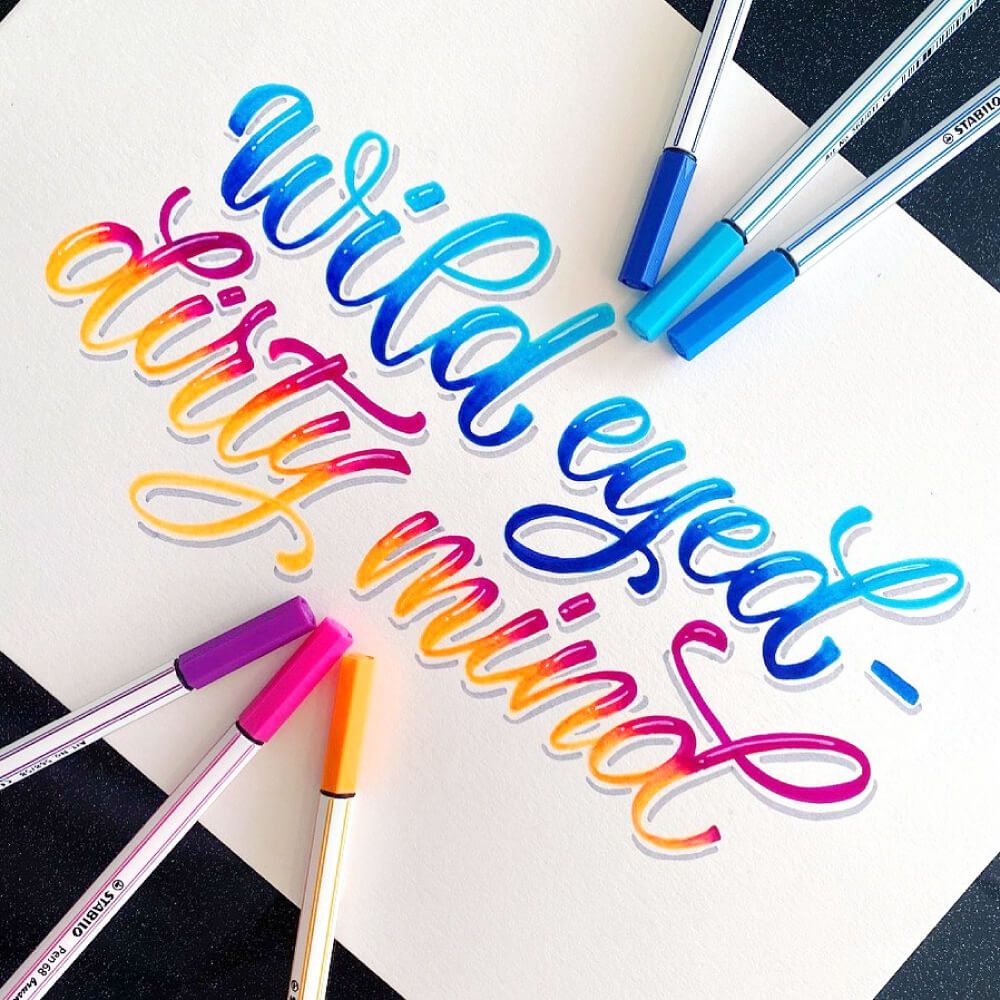 wild eyed-
dirty mind
STABILO
STABILO
Pen 68 brush